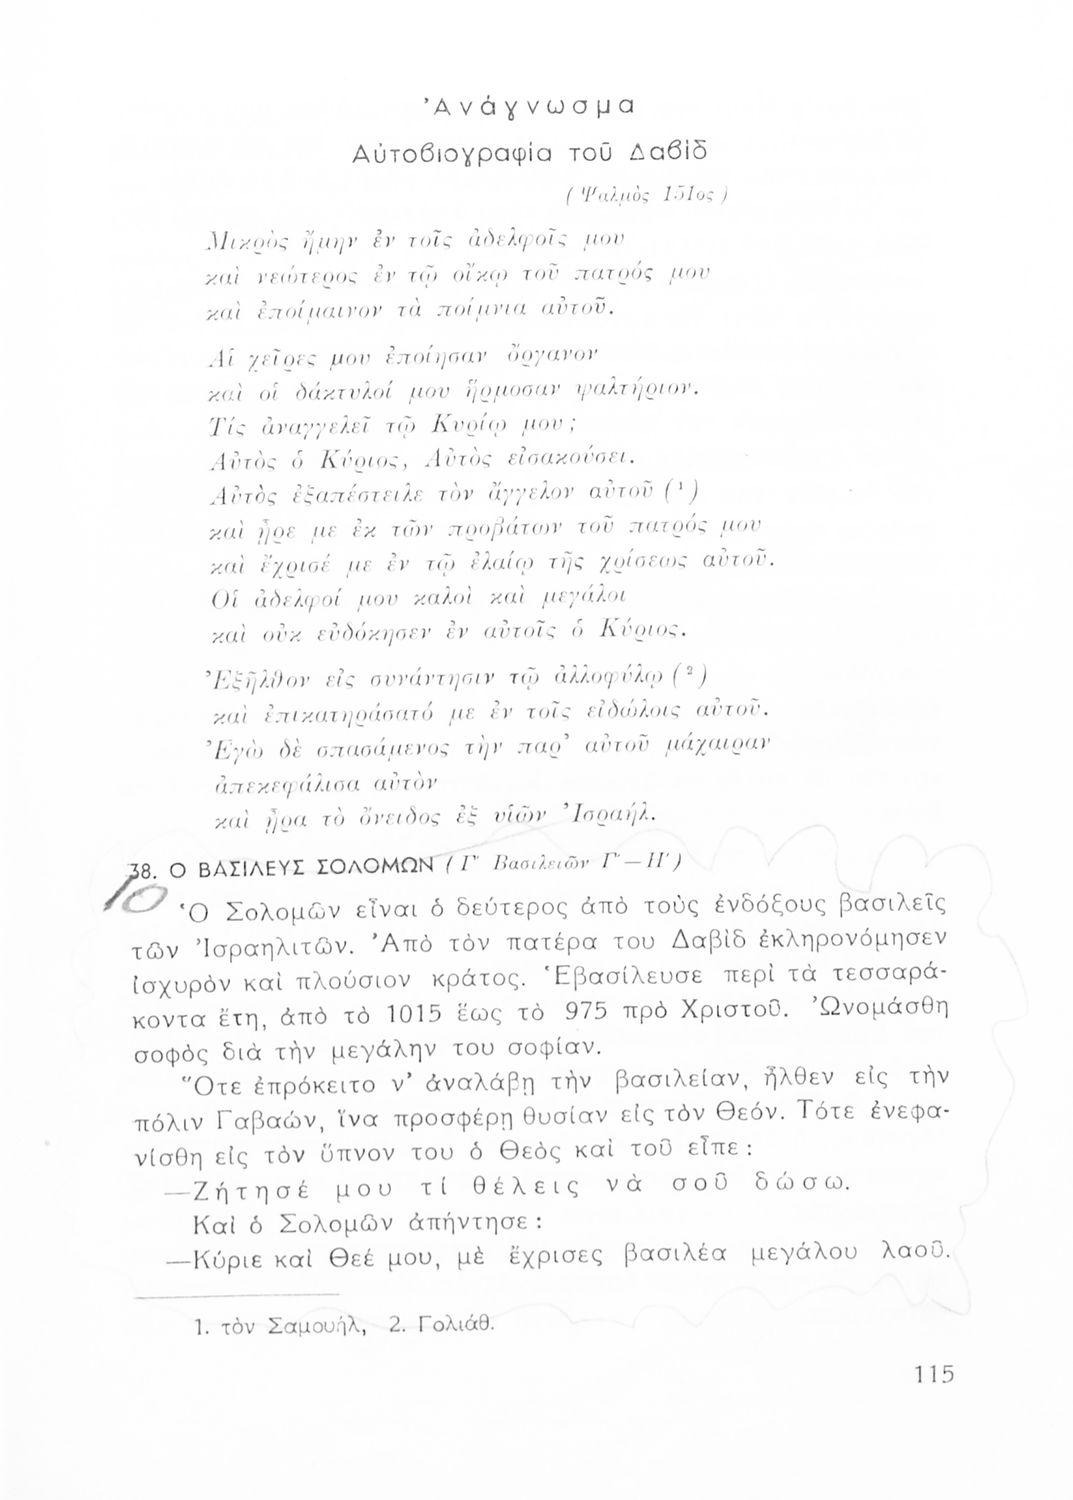 Ἀνάγνωσμα
Αὐτοβιογραφία τοῦ Δαβίδ
(Ψαλμὸς 151ος)
Μικρὸς ἤμην ἐν τοῖς ἀδελφοῖς μου
καὶ νεώτερος ἐν τῷ οἴκῳ τοῦ πατρός μου
καὶ ἐποίμαινον τὰ ποίμνια αὐτοῦ.
Αἱ χεῖρες μου ἐποίησαν ὄργανον
καὶ οἱ δάκτυλοί μου ἥρμοσαν ψαλτήριον.
Τίς ἀναγγελεῖ τῷ Κυρίῳ μου;
Αὐτὸς ὁ Κύριος, Αὐτὸς εἰσακούσει.
Αὐτὸς ἐξαπέστειλε τὸν ἄγγελον αὐτοῦ (¹)
καὶ ᾖρε με ἐκ τῶν προβάτων τοῦ πατρός μου
καὶ ἔχρισέ με ἐν τῷ ἐλαίῳ τῆς χρίσεως αὐτοῦ.
Οἱ ἀδελφοί μου καλοὶ καὶ μεγάλοι
καὶ οὐκ εὐδόκησεν ἐν αὐτοῖς ὁ Κύριος.
Ἐξῆλθον εἰς συνάντησιν τῷ ἀλλοφύλῳ (²)
καὶ ἐπικατηράσατό με ἐν τοῖς εἰδώλοις αὐτοῦ.
Ἐγὼ δὲ σπασάμενος τὴν παρ' αὐτοῦ μάχαιραν
ἀπεκεφάλισα αὐτὸν
καὶ ᾖρα τὸ ὄνειδος ἐξ υἱῶν Ἰσραήλ.
38. Ο ΒΑΣΙΛΕΥΣ ΣΟΛΟΜΩΝ (Γ' Βασιλειῶν Γ'—Η')
10
Ὁ Σολομῶν εἶναι ὁ δεύτερος ἀπὸ τοὺς ἐνδόξους βασιλεῖς
τῶν Ἰσραηλιτῶν. Ἀπὸ τὸν πατέρα του Δαβὶδ ἐκληρονόμησεν
ἰσχυρὸν καὶ πλούσιον κράτος. Ἐβασίλευσε περὶ τὰ τεσσαρά-
κοντα ἔτη, ἀπὸ τὸ 1015 ἕως τὸ 975 πρὸ Χριστοῦ. Ὠνομάσθη
σοφὸς διὰ τὴν μεγάλην του σοφίαν.
Ὅτε ἐπρόκειτο ν' ἀναλάβῃ τὴν βασιλείαν, ἦλθεν εἰς τὴν
πόλιν Γαβαών, ἵνα προσφέρῃ θυσίαν εἰς τὸν Θεόν. Τότε ἐνεφα-
νίσθη εἰς τὸν ὕπνον του ὁ Θεὸς καὶ τοῦ εἶπε:
—Ζήτησέ μου τί θέλεις νὰ σοῦ δώσω.
Καὶ ὁ Σολομῶν ἀπήντησε:
—Κύριε καὶ Θεέ μου, μὲ ἔχρισες βασιλέα μεγάλου λαοῦ.
1. τὸν Σαμουήλ, 2. Γολιάθ.
115